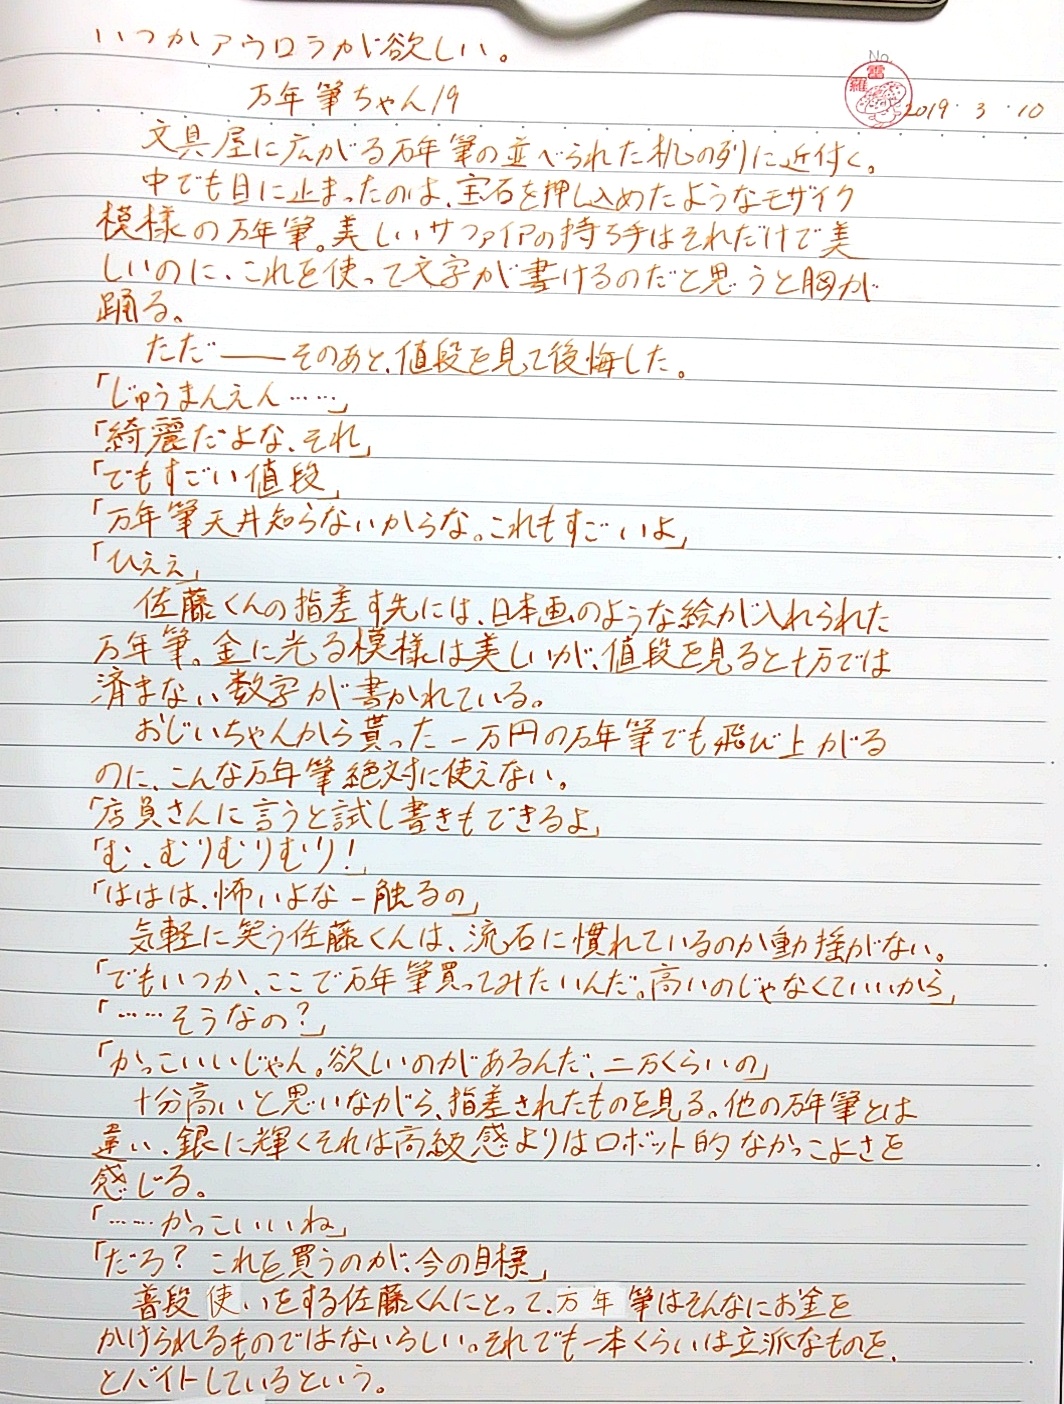 いつかアウロラが欲しい。
No.
雷羅
万年筆ちゃん19
2019・3・10
文具屋に広がる万年筆の並べられた机の列に近付く。
中でも目に止まったのは、宝石を押し込めたようなモザイク
模様の万年筆。美しいサファイアの持ち手はそれだけで美
しいのに、これを使って文字が書けるのだと思うと胸が
踊る。
ただ――そのあと、値段を見て後悔した。
「じゅうまんえん……」
「綺麗だよな、それ」
「でもすごい値段」
「万年筆天井知らないからな。これもすごいよ」
「ひええ」
佐藤くんの指差す先には、日本画のような絵が入れられた
万年筆。金に光る模様は美しいが、値段を見ると十万では
済まない数字が書かれている。
おじいちゃんから貰った一万円の万年筆でも飛び上がる
のに、こんな万年筆絶対に使えない。
「店員さんに言うと試し書きもできるよ」
「む、むりむりむり!」
「ははは、怖いよなー触るの」
気軽に笑う佐藤くんは、流石に慣れているのか動揺がない。
「でもいつか、ここで万年筆買ってみたいんだ。高いのじゃなくていいから」
「……そうなの?」
「かっこいいじゃん。欲しいのがあるんだ、二万くらいの」
十分高いと思いながら、指差されたものを見る。他の万年筆とは
違い、銀に輝くそれは高級感よりはロボット的なかっこよさを
感じる。
「……かっこいいね」
「だろ? これを買うのが、今の目標」
普段使いをする佐藤くんにとって、万年筆はそんなにお金を
かけられるものではないらしい。それでも一本くらいは立派なものを、
とバイトしているという。